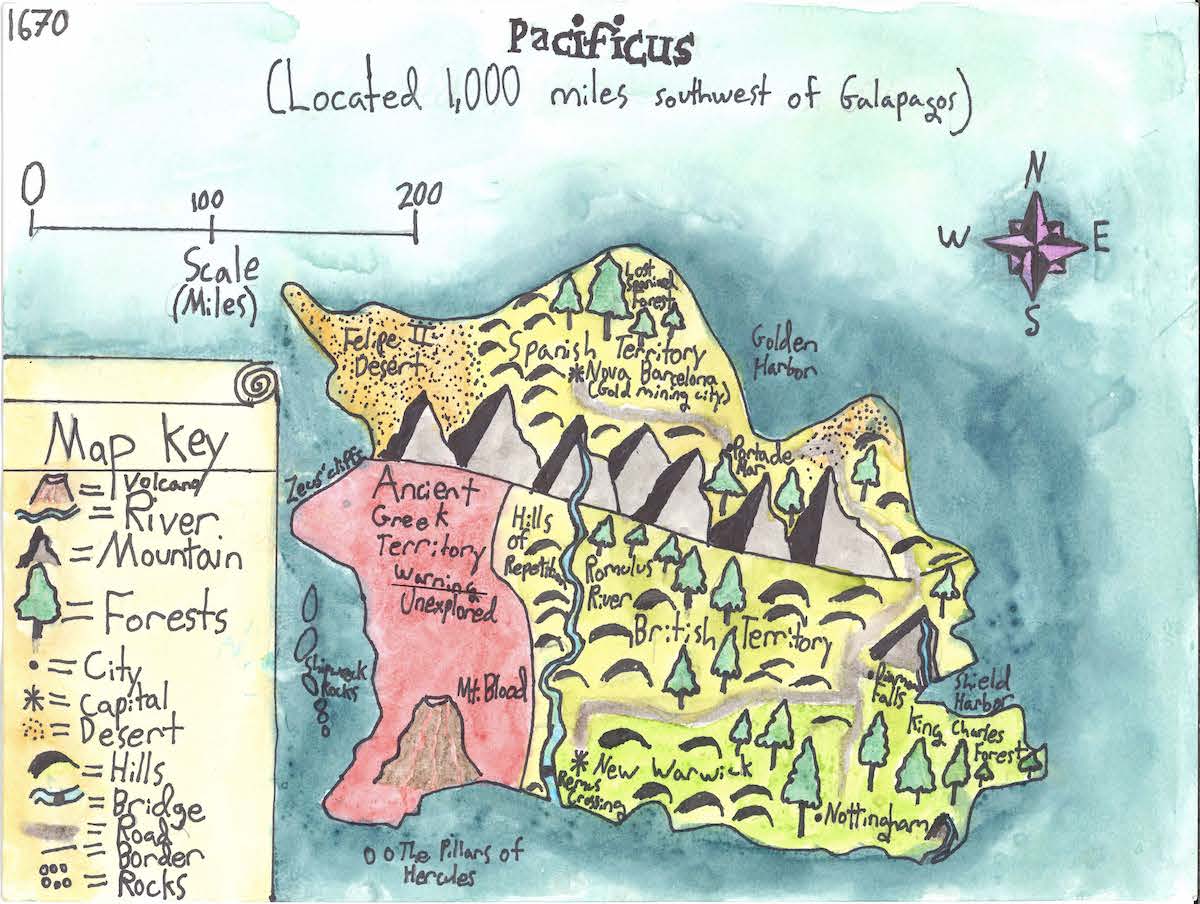 1670
Pacificus
(Located 1,000 miles southwest of Galapagos)
0
100
200
Scale
(Miles)
N
W
E
S
Map Key
= Volcano
= River
= Mountain
= Forests
= City
= Capital
= Desert
= Hills
= Bridge
= Road
= Border
= Rocks
Felipe II
Desert
Lost
Spaniard
Forest
Spanish Territory
Nova Barcelona
(Gold mining city)
Golden
Harbor
Porta de
Mar
Zeus' cliffs
Ancient
Greek
Territory
Warning
Unexplored
Hills
of
Repetition
Romulus
River
British Territory
Shipwreck
Rocks
Mt. Blood
Falls
Shield
Harbor
King Charles
Forest
New Warwick
Remus
Crossing
Nottingham
The Pillars of
Hercules